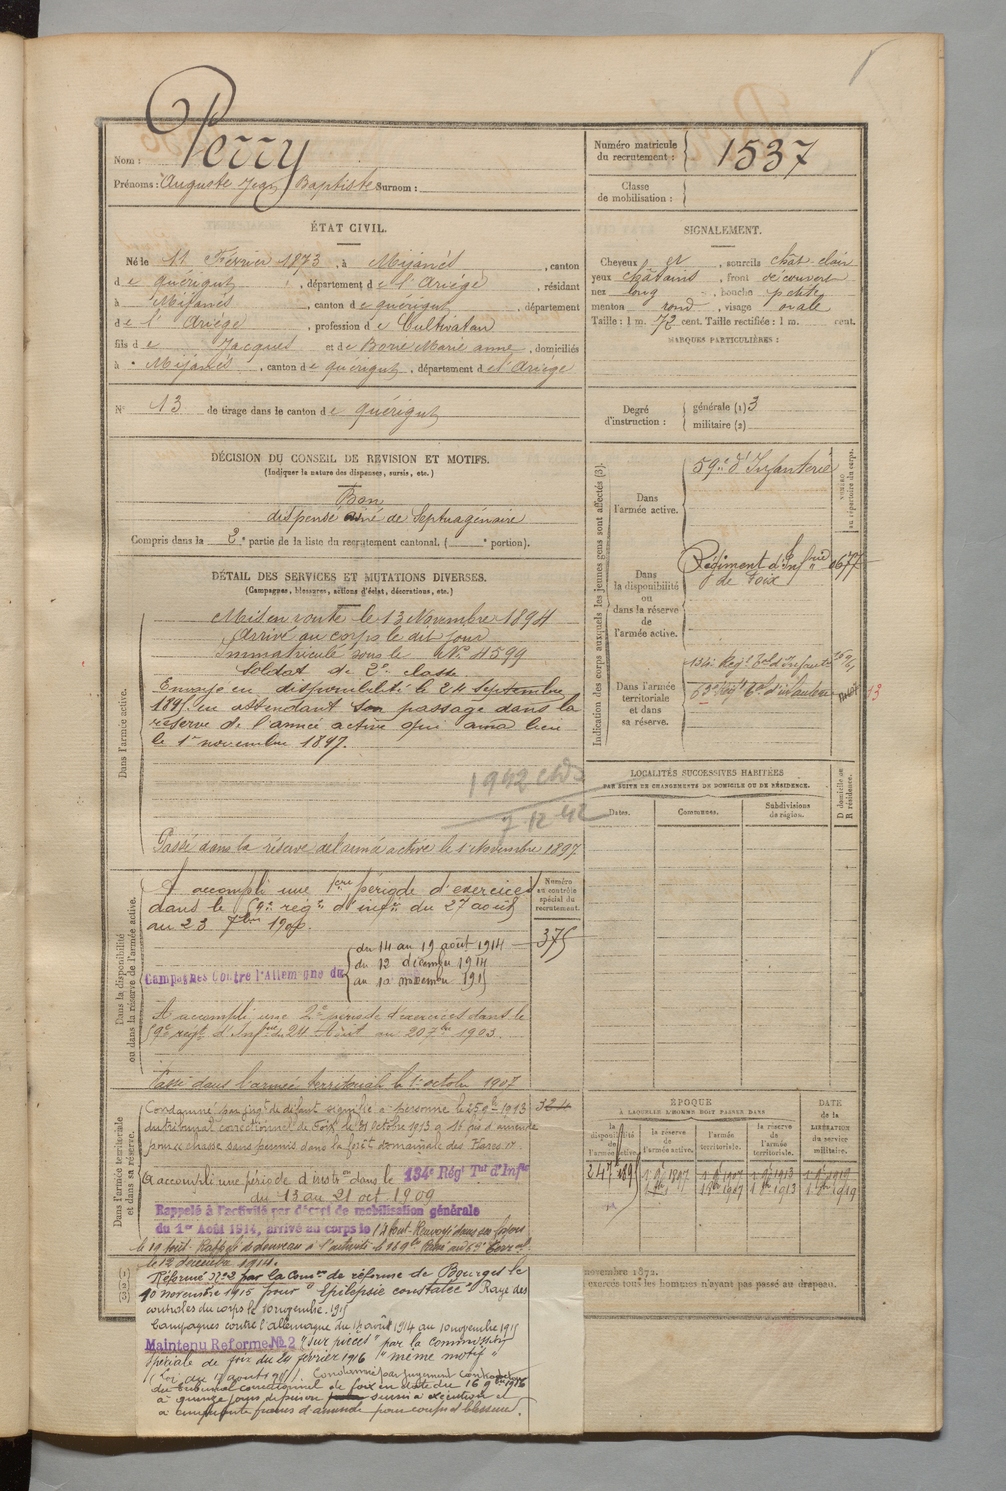 Nom : Perry
Prénoms : Auguste Jean Baptiste Surnom :
Numéro matricule du recrutement : 1537
Classe de mobilisation :
ÉTAT CIVIL.
Né le 11 Février 1873, à Mijanès, canton
de Quérigut, département de l'Ariège, résidant
à Mijanès, canton de Quérigut, département
de l'Ariège, profession de Cultivateur
fils de Jacques et de Borre Marie anne, domiciliés
à Mijanès, canton de Quérigut, département de l'Ariège
N° 13 de tirage dans le canton de Quérigut
SIGNALEMENT.
Cheveux et, sourcils chât-clair
yeux châtains, front découvert
nez long, bouche petite
menton rond, visage ovale
Taille : 1 m. 73 cent. Taille rectifiée : 1 m. cent.
MARQUES PARTICULIÈRES :
Degré d'instruction : générale (1) 3
militaire (2)
DÉCISION DU CONSEIL DE REVISION ET MOTIFS.
(Indiquer la nature des dispenses, sursis, etc.)
Bon
dispensé ainé de Septuagénaire
Compris dans la 2e partie de la liste du recrutement cantonal. ( e portion).
DÉTAIL DES SERVICES ET MUTATIONS DIVERSES.
(Campagnes, blessures, actions d'éclat, décorations, etc.)
Dans l'armée active.
Mis en route le 13 Novembre 1894
Arrivé au corps le dit jour
Immatriculé sous le N° 4599
Soldat de 2e classe.
Envoyé en disponibilité le 24 Septembre
1897 en attendant son passage dans la
réserve de l'armée active qui aura lieu
le 1er novembre 1897.
1942
7-12-42
Passé dans la réserve de l'armée active le 1er Novembre 1897.
Dans la disponibilité ou dans la réserve de l'armée active.
A accompli une 1ère période d'exercices
dans le 59e régt d'infie du 27 août
au 23 7bre 1900.
Campagnes Contre l'Allemagne du
du 14 au 19 août 1914
du 12 décembre 1914
au 10 novembre 1915
A accompli une 2e période d'exercices dans le
59e régt d'Infie du 24 Août au 20 7bre 1903.
Passé dans l'armée territoriale le 1er octobre 1907
Numéro au contrôle spécial du recrutement.
375
324
Dans l'armée territoriale et dans sa réserve.
Condamné par jugt de défaut signifié à personne le 25 9bre 1913
du tribunal correctionnel de Foix le 31 octobre 1913 à 16 frs d'amende
pour chasse sans permis dans la forêt domaniale des Hares.
A accompli une période d'instron dans le 134e Régt Tal d'Infie
du 13 au 21 oct 1909
Rappelé à l'activité par décret de mobilisation générale
du 1er Août 1914, arrivé au corps le 14 août. Renvoyé dans ses foyers
le 19 août. Rappelé de nouveau à l'activité le
le 12 décembre 1914.
Réformé N°2 par la Comon de réforme de Bourges le
10 novembre 1915 pour "Epilepsie constatée" Rayé des
contrôles du corps le 10 novembre 1915
Campagnes contre l'allemagne du 14 août 1914 au 10 novembre 1915
Maintenu Reforme N° 2 "sur pièces" par la commission
spéciale de foix du 24 février 1916 "même motif"
(Loi du 17 août 1915). Condamné par jugement contradictoire
du tribunal correctionnel de foix en date du 16 9bre 1916
à quinze jours de prison sursis à exécution et
à cinquante francs d'amende pour coups et blessures.
Indication des corps auxquels les jeunes gens sont affectés (3).
Dans l'armée active.
59e d'Infanterie
NUMÉRO au répertoire du corps.
Dans la disponibilité ou dans la réserve de l'armée active.
Régiment d'Infrie de Foix
Dans l'armée territoriale et dans sa réserve.
134e Régt Tal d'Infanterie
63e régt Tal d'infanterie
13
LOCALITÉS SUCCESSIVES HABITÉES
PAR SUITE DE CHANGEMENTS DE DOMICILE OU DE RÉSIDENCE.
Dates.
Communes.
Subdivisions de région.
D domicile ou R résidence.
ÉPOQUE
À LAQUELLE L'HOMME DOIT PASSER DANS
la disponibilité de l'armée active.
la réserve de l'armée active.
l'armée territoriale.
la réserve de l'armée territoriale.
DATE de la LIBÉRATION du service militaire.
24 7bre 1897
1 9 1897
1 9 1907
1 9 1913
1 9 1919
1 1907
1 1913
1 1919
(1)
(2)
(3)
novembre 1872.
exercés tous les hommes n'ayant pas passé au drapeau.